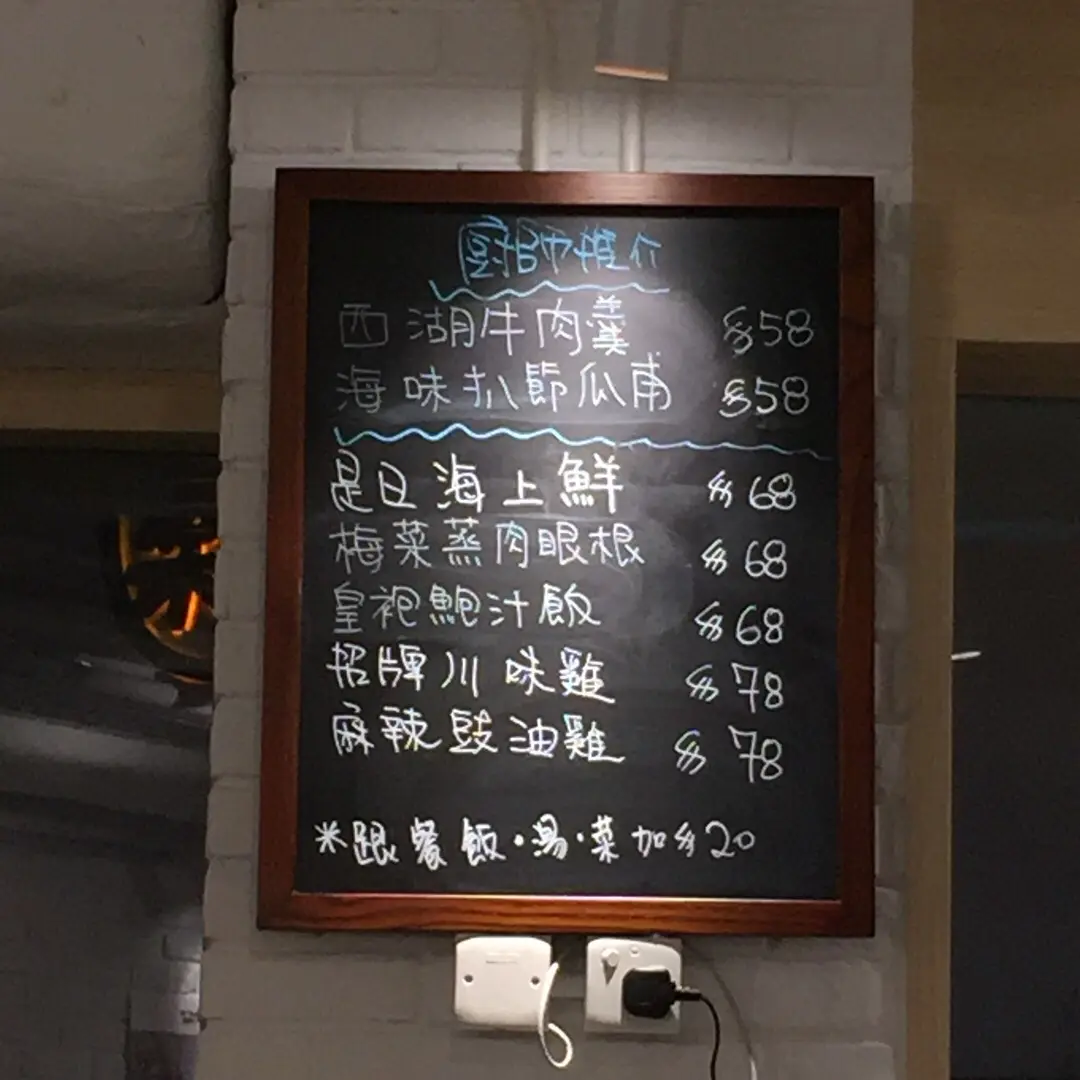 廚師推介
西湖牛肉羹 $58
海味扒節瓜甫 $58
是日海上鮮 $68
梅菜蒸肉眼根 $68
皇袍鮑汁飯 $68
招牌川味雞 $78
麻辣豉油雞 $78
*跟餐飯·湯·菜加$20